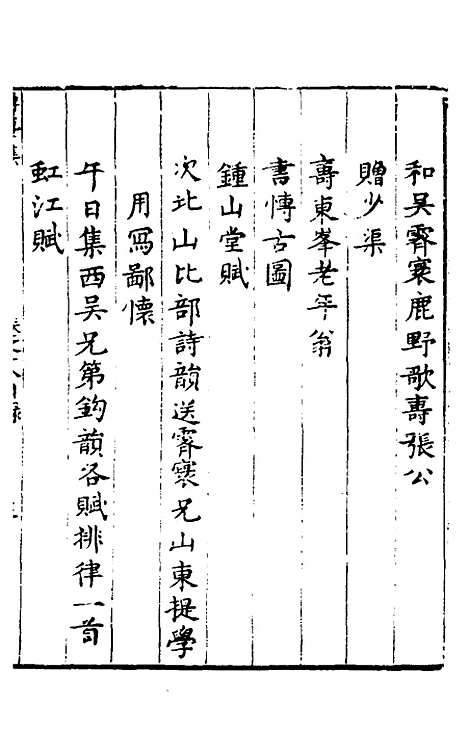 和吳霽寰鹿野歌壽張公
贈少渠
壽東峯老年翁
書博古圖
鍾山堂賦
次北山比部詩韻送霽寰兄山東提學
用寫鄙懷
午日集西吳兄第鈞韻各賦排律一首
虹江賦